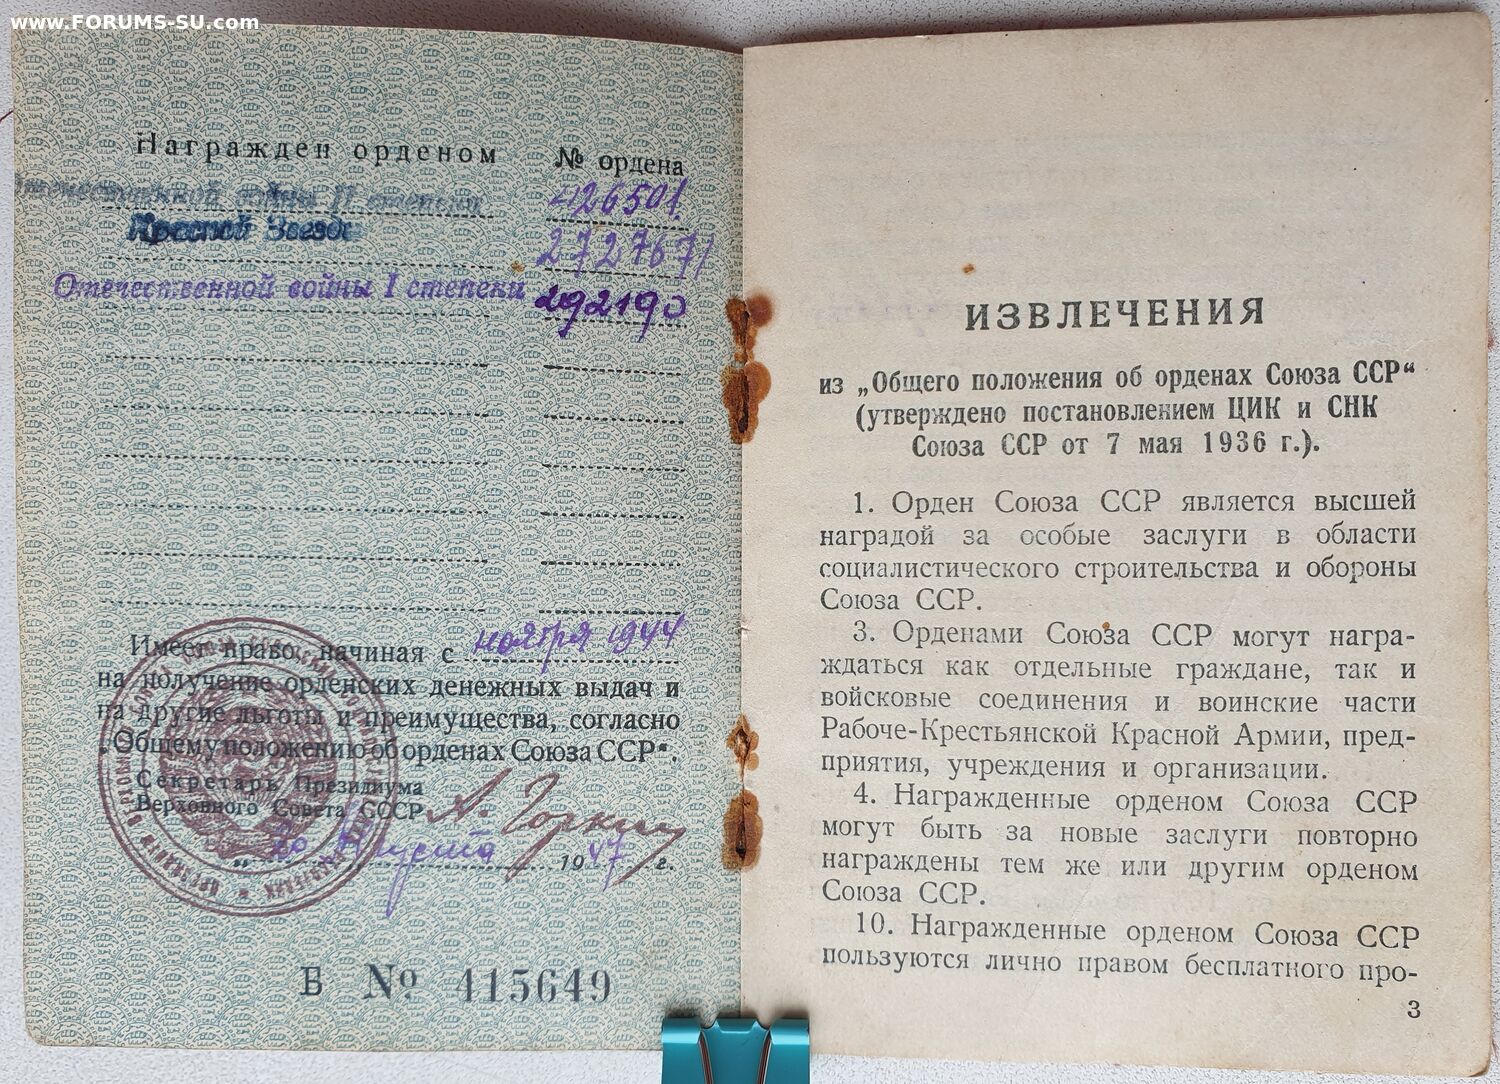 www.FORUMS-SU.com
Награжден орденом № ордена
Отечественной войны II степени 426501.
Красной Звезды 2727671
Отечественной войны I степени 292190
Имеет право, начиная с ноября 1944
на получение орденских денежных выдач и
на другие льготы и преимущества, согласно
„Общему положению об орденах Союза ССР“.
Секретарь Президиума
Верховного Совета СССР А. Горкин
„20 Августа 1947 г.
Б № 415649
ИЗВЛЕЧЕНИЯ
из „Общего положения об орденах Союза ССР“
(утверждено постановлением ЦИК и СНК
Союза ССР от 7 мая 1936 г.).
1. Орден Союза ССР является высшей
наградой за особые заслуги в области
социалистического строительства и обороны
Союза ССР.
3. Орденами Союза ССР могут награ-
ждаться как отдельные граждане, так и
войсковые соединения и воинские части
Рабоче-Крестьянской Красной Армии, пред-
приятия, учреждения и организации.
4. Награжденные орденом Союза ССР
могут быть за новые заслуги повторно
награждены тем же или другим орденом
Союза ССР.
10. Награжденные орденом Союза ССР
пользуются лично правом бесплатного про-
3